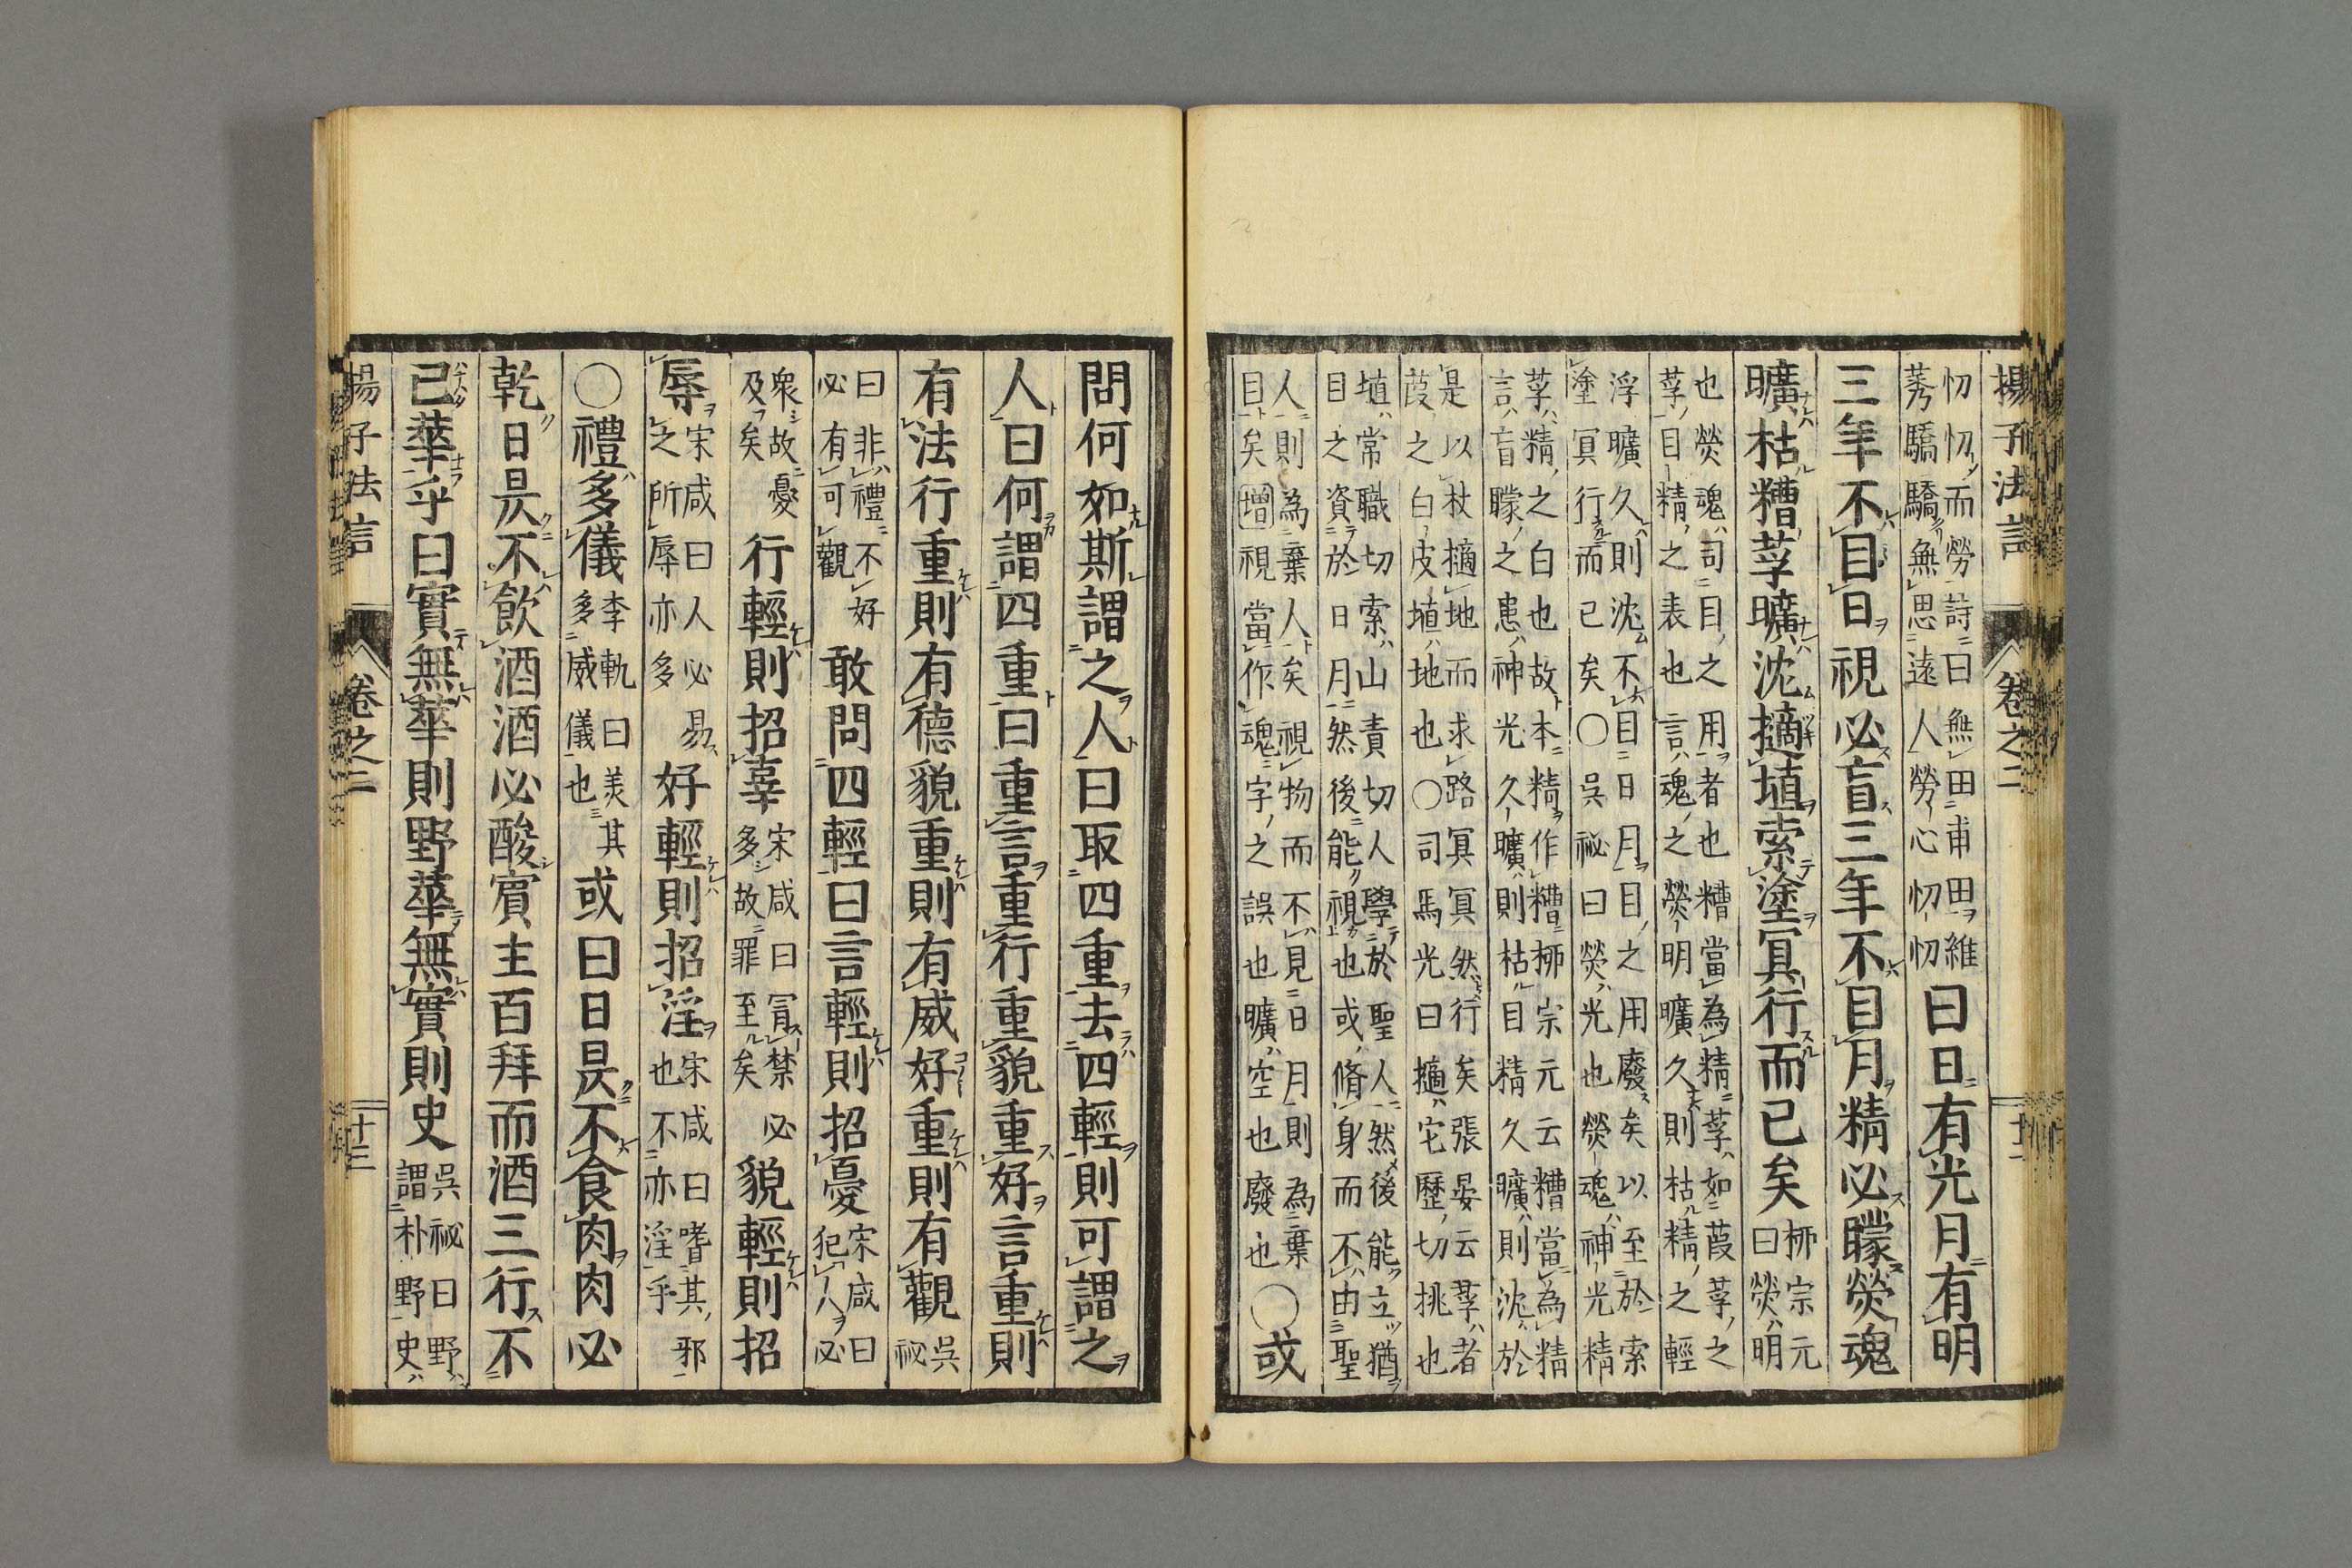 揚子法言　卷之二　十二
忉忉而勞詩曰無田甫田維
莠驕驕無思遠人勞心忉忉
曰日有光月有明
三年不目日視必盲三年不目月精必矇熒魂
曠枯糟莩曠沈擿埴索塗冥行而已矣
柳宗元
曰熒明
也熒魂司目之用者也糟當為精莩如葭莩之
莩目精之表也言魂之熒明曠久則枯精之輕
浮曠久則沈不目日月目之用廢矣以至於索
塗冥行而已矣〇吳祕曰熒光也熒魂神光精
莩精之白也故本精作糟柳宗元云糟當為精
言盲矇之患神光久曠則枯目精久曠則沈於
是以杖擿地而求路冥冥然行矣張晏云莩者
葭之白皮埴地也〇司馬光曰擿宅歷切挑也
埴常職切索山責切人學於聖人然後能立猶
目之資於日月然後能視也或脩身而不由聖
人則為棄人矣視物而不見日月則為棄
目矣增視當作魂字之誤也曠空也廢也
〇或
問何如斯謂之人曰取四重去四輕則可謂之
人曰何謂四重曰重言重行重貌重好言重則
有法行重則有德貌重則有威好重則有觀
吳
祕
曰非禮不好
必有可觀
敢問四輕曰言輕則招憂
宋咸曰
犯人必
衆故憂
及矣
行輕則招辜
宋咸曰冐禁必
多故罪至矣
貌輕則招
辱
宋咸曰人必易
之所辱亦多
好輕則招淫
宋咸曰嗜其邪
也不亦淫乎
〇禮多儀
李軌曰美其
多威儀也
或曰日昃不食肉肉必
乾日昃不飲酒酒必酸賓主百拜而酒三行不
已華乎曰實無華則野華無實則史
吳祕曰野
謂朴野史
揚子法言　卷之二　十三